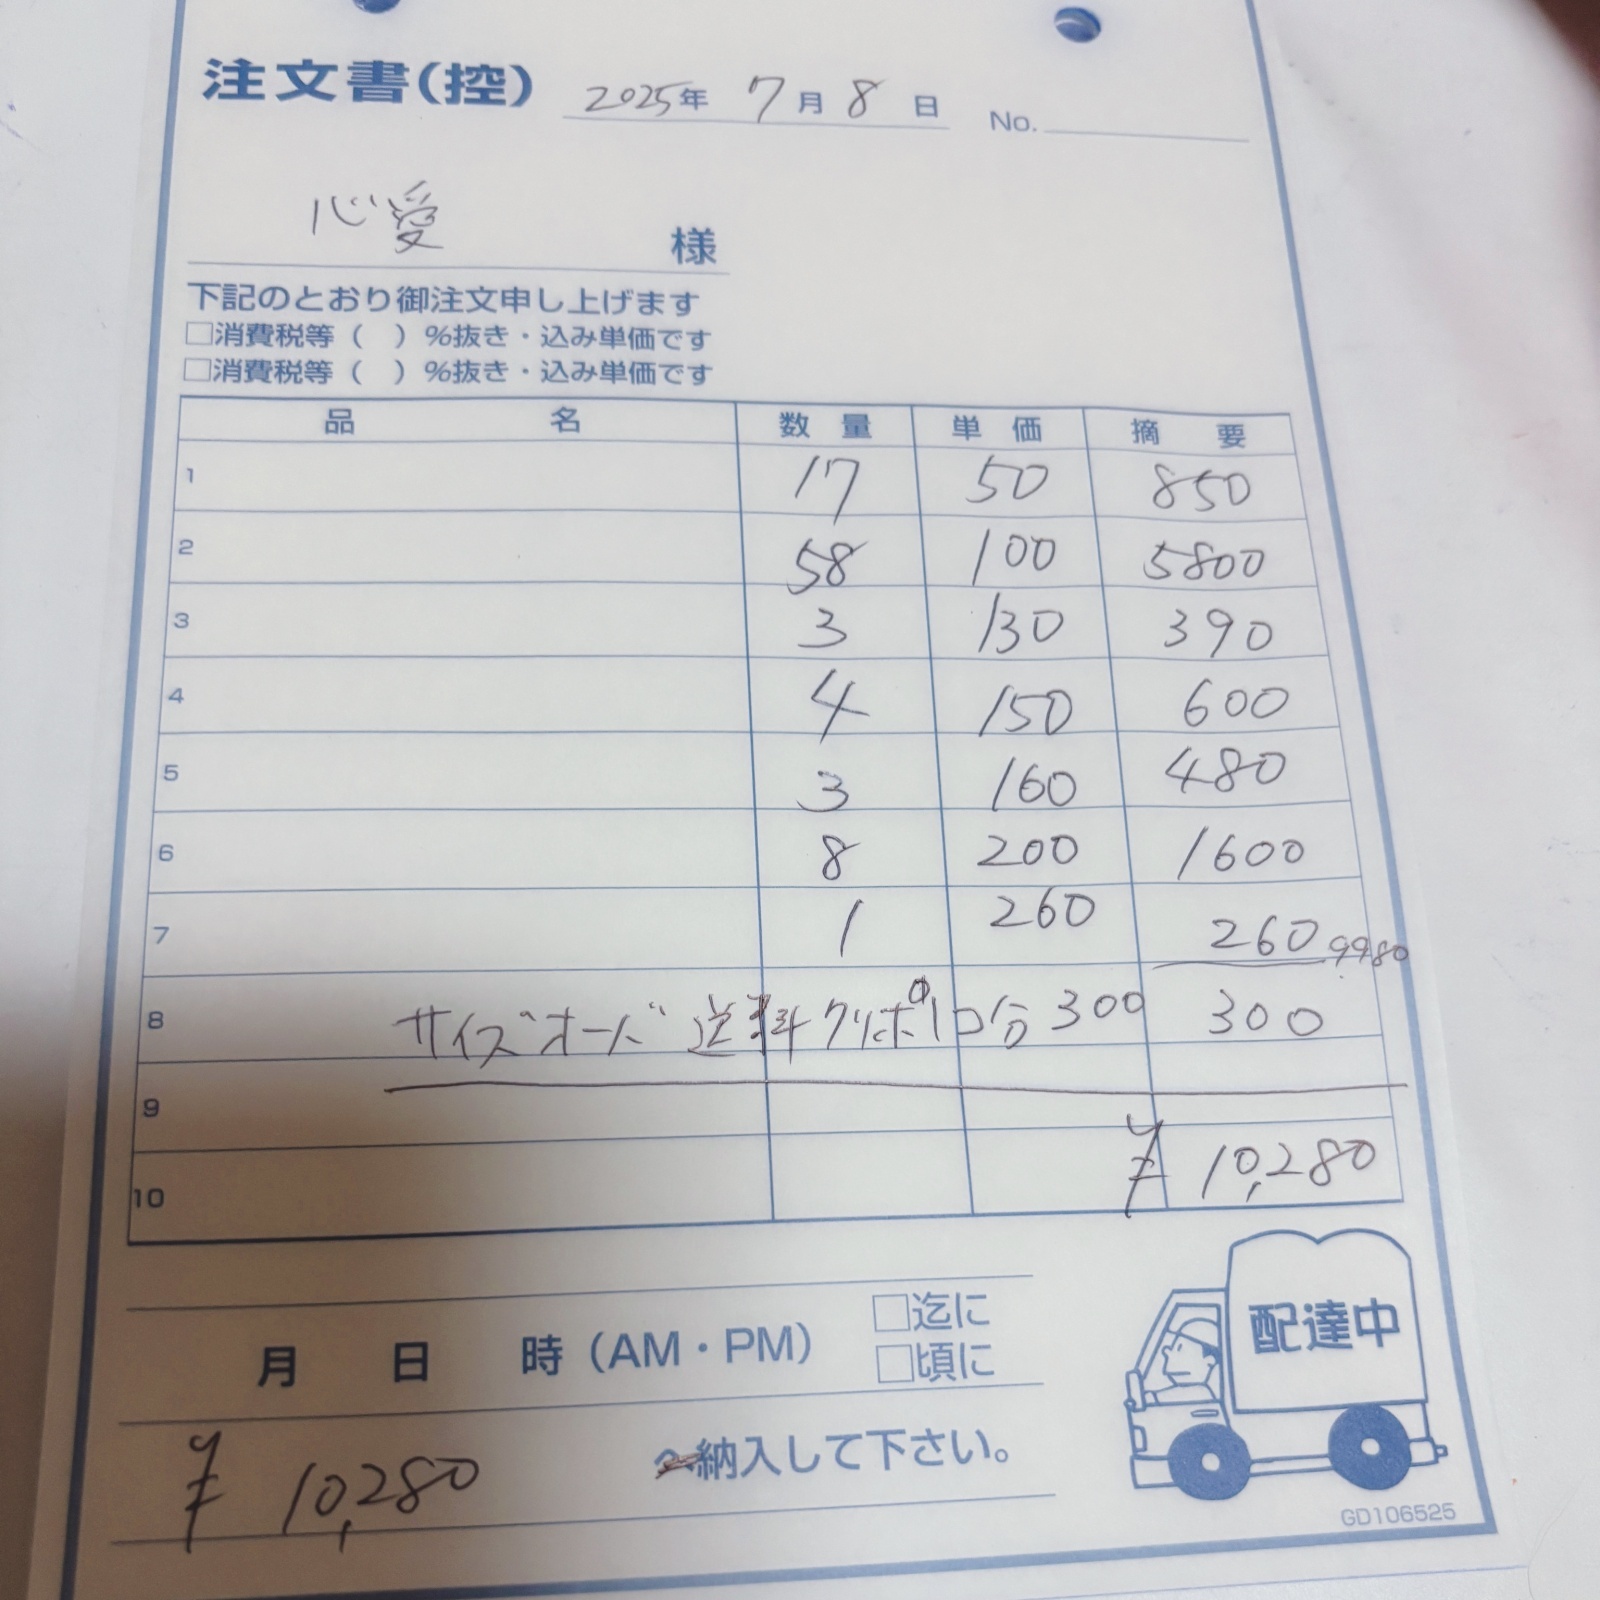 注文書(控) 2025年 7月 8日 No.
心愛 様
下記のとおり御注文申し上げます
□消費税等( )%抜き・込み単価です
□消費税等( )%抜き・込み単価です
品 名 数 量 単 価 摘 要
1 17 50 850
2 58 100 5800
3 3 130 390
4 4 150 600
5 3 160 480
6 8 200 1600
7 1 260 260 9980
8 サイズオーバ 送料クリックポスト 300 300
9
10 ¥ 10,280
月 日 時(AM・PM) □迄に
□頃に
¥ 10,280 へ納入して下さい。
配達中
GD106525